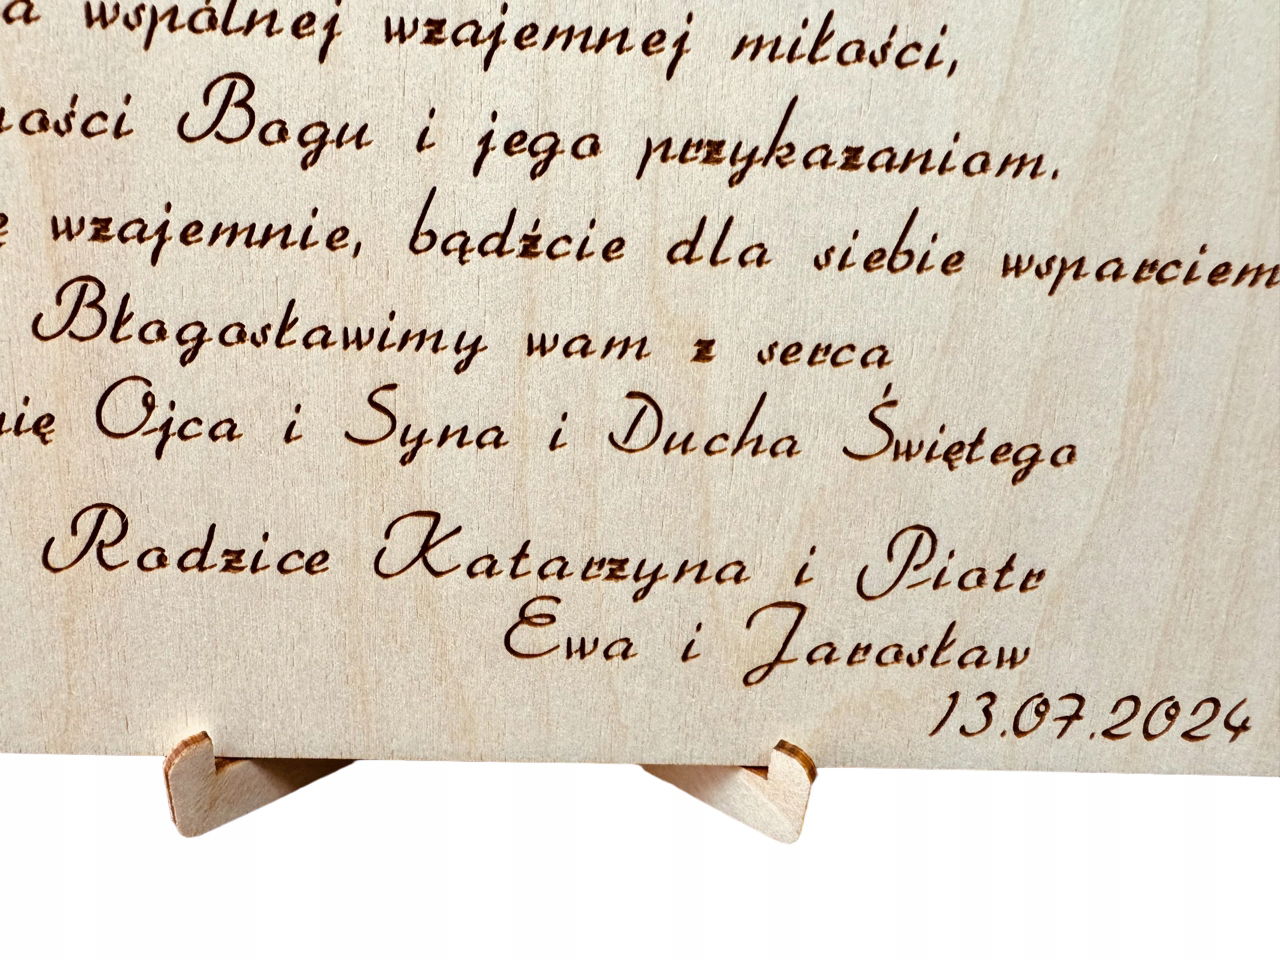 a wspólnej wzajemnej miłości,
ności Bogu i jego przykazaniom.
ę wzajemnie, bądźcie dla siebie wsparciem
Błogosławimy wam z serca
nię Ojca i Syna i Ducha Świętego
Rodzice Katarzyna i Piotr
Ewa i Jarosław
13.07.2024